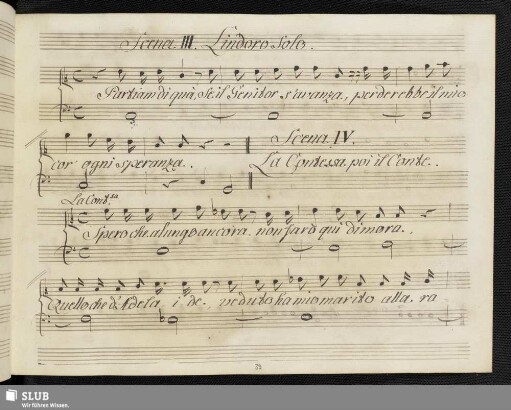 Scena. III. Lindoro solo.
Partiam di quà, Se il Genitor s'avanza., perderebbe il mio
cor ogni speranza..
Scena. IV.
La Contessa. poi il Conte..
La Cont.sa
Spero che a lungo ancora. non farà qui dimora..
Quello che d'Adela, i de., veduto ha mio marito alla. ra
SLUB
Wir führen Wissen.